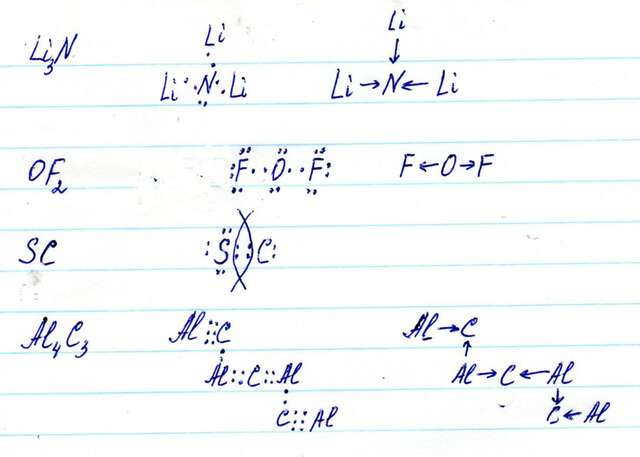 Li
Li
Li₃N
Li N Li
Li → N ← Li
OF₂
F O F
F ← O → F
SC
S C
Al₄C₃
Al C
Al → C
Al C Al
Al → C ← Al
C Al
C ← Al